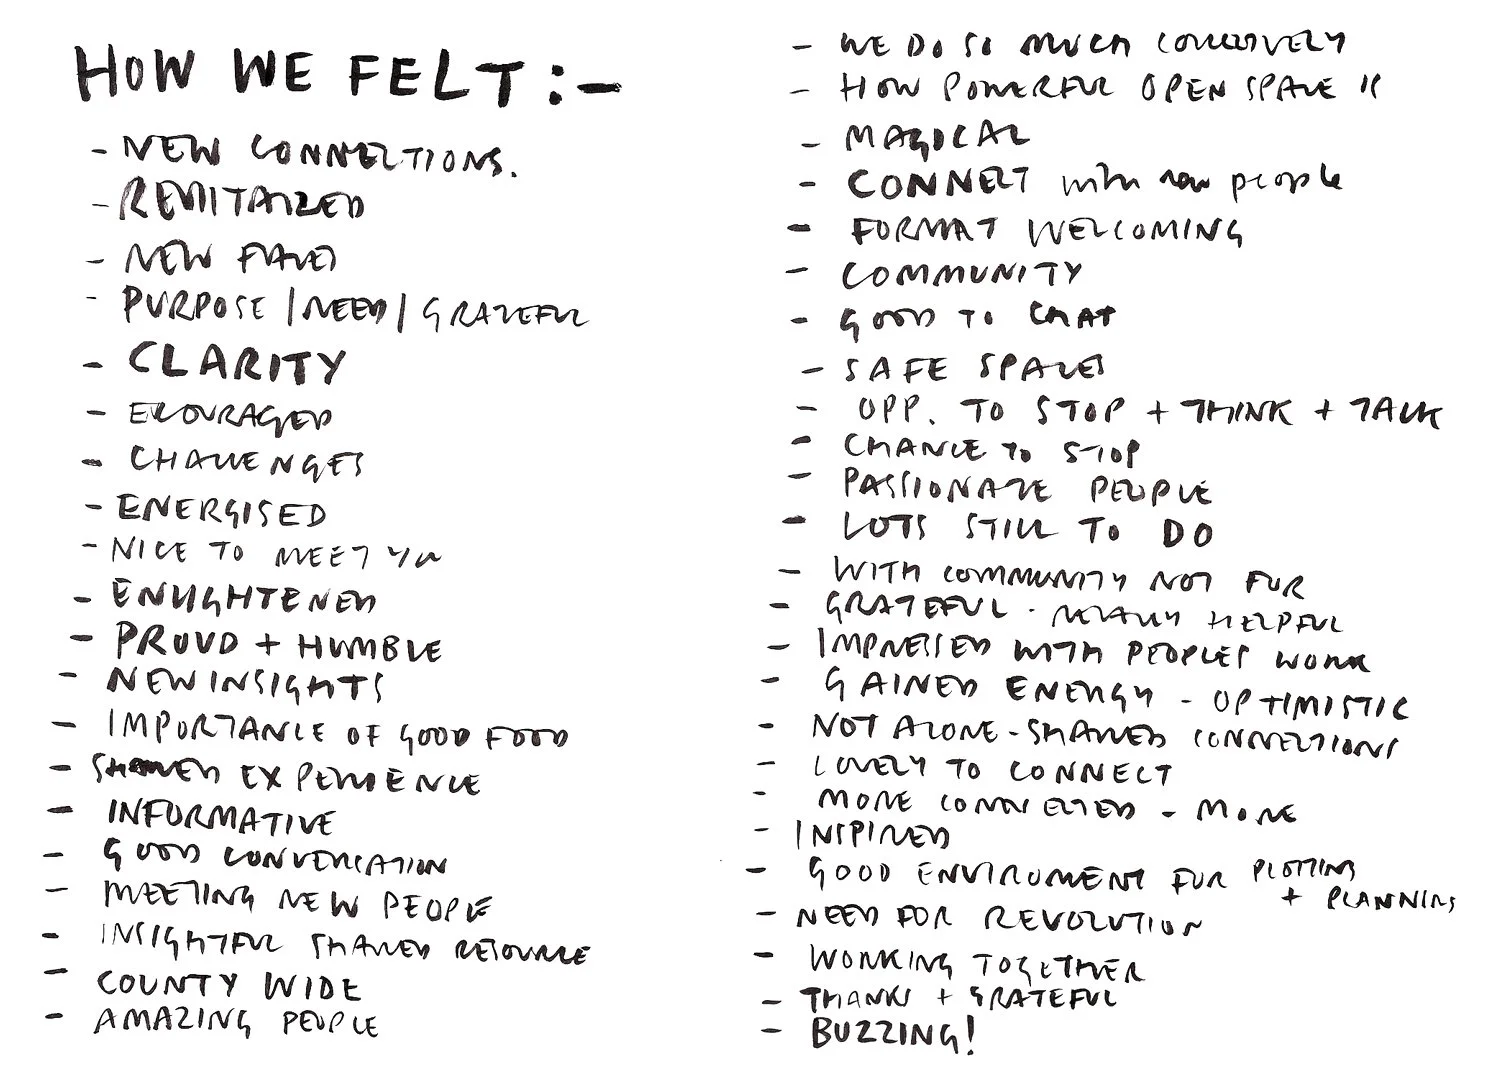 HOW WE FELT :-
- NEW CONNECTIONS.
- REVITALIZED
- NEW FACES
- PURPOSE | NEED | GRATEFUL
- CLARITY
- ENCOURAGED
- CHALLENGES
- ENERGISED
- NICE TO MEET YOU
- ENLIGHTENED
- PROUD + HUMBLE
- NEW INSIGHTS
- IMPORTANCE OF GOOD FOOD
- SHARED EXPERIENCE
- INFORMATIVE
- GOOD CONVERSATION
- MEETING NEW PEOPLE
- INSIGHTFUL SHARED RESOURCE
- COUNTY WIDE
- AMAZING PEOPLE
- WE DO SO MUCH COLLECTIVELY
- HOW POWERFUL OPEN SPACE IS
- MAGICAL
- CONNECT with new people
- FORMAT WELCOMING
- COMMUNITY
- GOOD TO CHAT
- SAFE SPACES
- OPP. TO STOP + THINK + TALK
- CHANCE TO STOP
- PASSIONATE PEOPLE
- LOTS STILL TO DO
- WITH COMMUNITY NOT FOR
- GRATEFUL - REALLY HELPFUL
- IMPRESSED WITH PEOPLES WORK
- GAINED ENERGY - OPTIMISTIC
- NOT ALONE - SHARED CONNECTIONS
- LOVELY TO CONNECT
- MORE CONNECTED - MORE
- INSPIRED
- GOOD ENVIROMENT FOR PLOTTING
+ PLANNING
- NEED FOR REVOLUTION
- WORKING TOGETHER
- THANKS + GRATEFUL
- BUZZING!